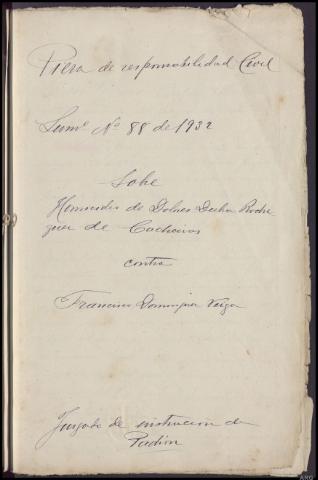 Pieza de responsabilidad Civil
Sumº Nº 88 de 1932
Sobe
Homicidio de Dolores Rodri
guez de Cacheiras
contra
Francisco Dominguez Veiga
Juzgado de instrucción de
Padrón